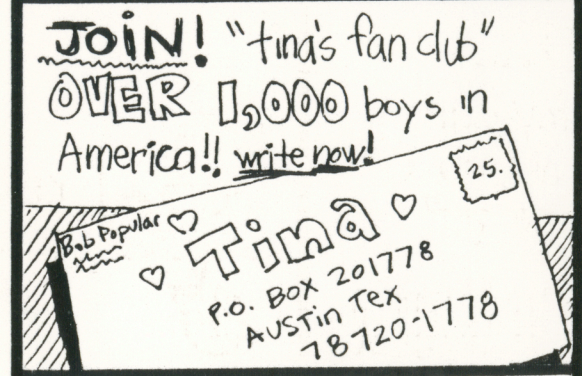 JOIN! "tina's fan club"
OVER 1,000 boys in
America!! write now!
Bob Popular
25.
Tina
P.O. BOX 201778
AUSTin Tex
78720-1778